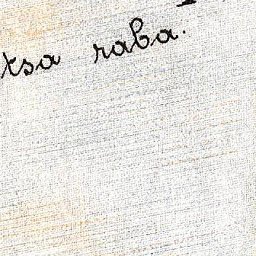 tsa raba.